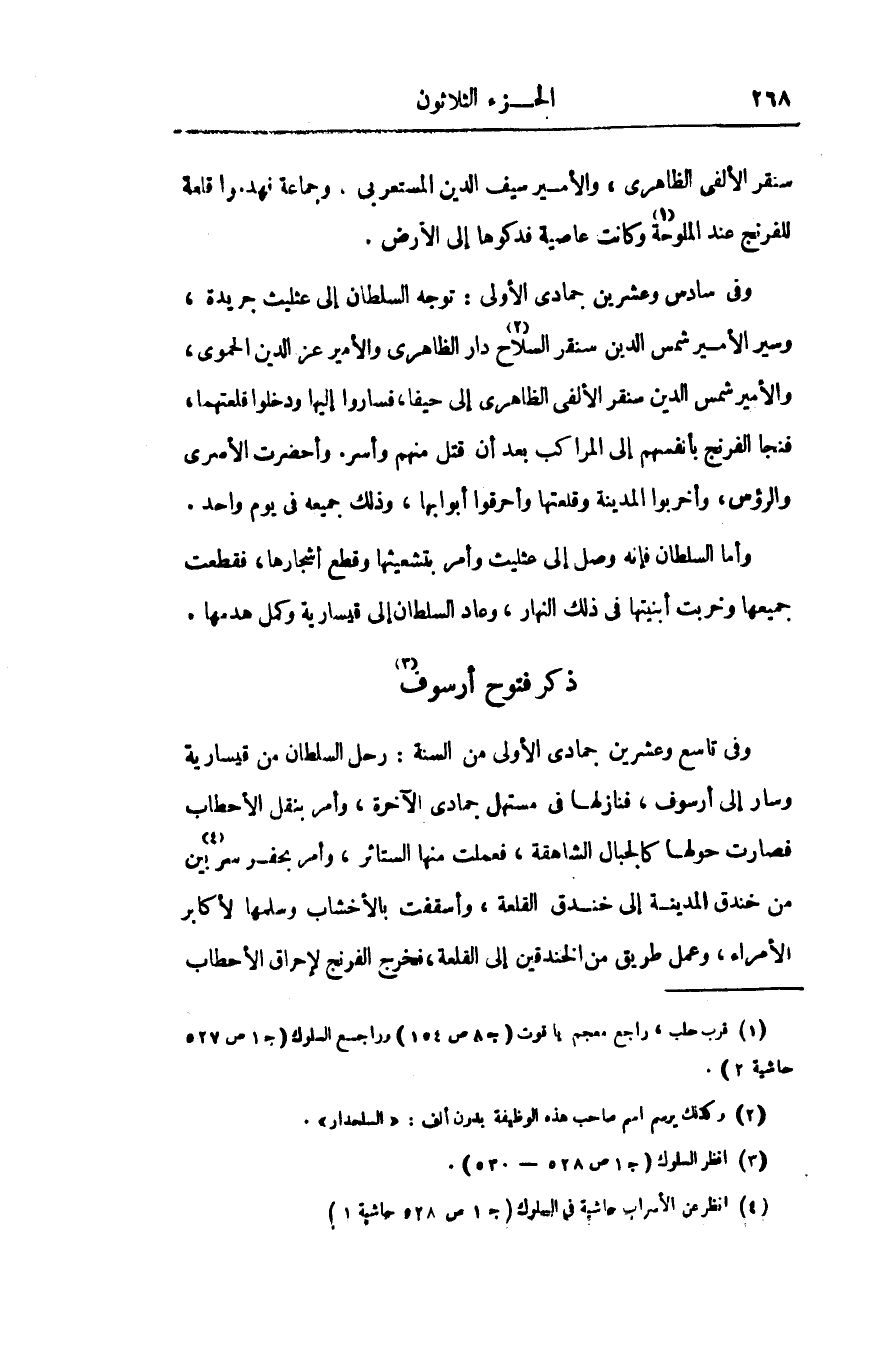 ٢٦٨ الجـــزء الثلاثون
سنقر الألفى الظاهرى ، والأمـــير سيف الدين المستعربى . وجماعة نهدموا قلعة
للفرنج عند الملوحة(١) وكانت عاصية فدكوها إلى الأرض .
وفى سادس وعشرين جمادى الأولى : توجه السلطان إلى عثليث جريدة ،
وسير الأمـــير شمس الدين سنقر السلاح(٢) دار الظاهرى والأمير عز الدين الحموى ،
والأمير شمس الدين سنقر الألفى الظاهرى إلى حيفا ، فساروا إليها ودخلوا قلعتهما ،
فنجا الفرنج بأنفسهم إلى المراكب بعد أن قتل منهم وأسر . وأحضرت الأسرى
والرؤس ، وأخربوا المدينة وقلعتها وأحرقوا أبوابها ، وذلك جميعه فى يوم واحد .
وأما السلطان فإنه وصل إلى عثليث وأمر بتشعيثها وقطع أشجارها ، فقطعت
جميعها وخربت أبنيتها فى ذلك النهار ، وعاد السلطان إلى قيسارية وكمل هدمها .
ذكر فتوح أرسوف(٣)
وفى تاسع وعشرين جمادى الأولى من السنة : رحل السلطان من قيسارية
وسار إلى أرسوف ، فنازلهــا فى مستهل جمادى الآخرة ، وأمر بنقل الأحطاب
فصارت حولهــا كالجبال الشاهقة ، فعملت منها الستائر ، وأمر بحفــر سربين(٤)
من خندق المدينــة إلى خنــدق القلعة ، وأسقفت بالأخشاب وسلمها لأكابر
الأمراء ، وعمل طريق من الخندقين إلى القلعة ، فخرج الفرنج لإحراق الأحطاب
(١) قرب حلب ، راجع معجم ياقوت ( جـ ٨ ص ١٥٤ ) وراجــع السلوك ( جـ ١ ص ٥٢٧
حاشية ٢ ) .
(٢) وكذلك يرسم اسم صاحب هذه الوظيفة بدون ألف : « السلحدار » .
(٣) انظر السلوك ( جـ ١ ص ٥٢٨ — ٥٣٠ ) .
(٤) انظر عن الأسراب حاشية فى السلوك ( جـ ١ ص ٥٢٨ حاشية ١ )